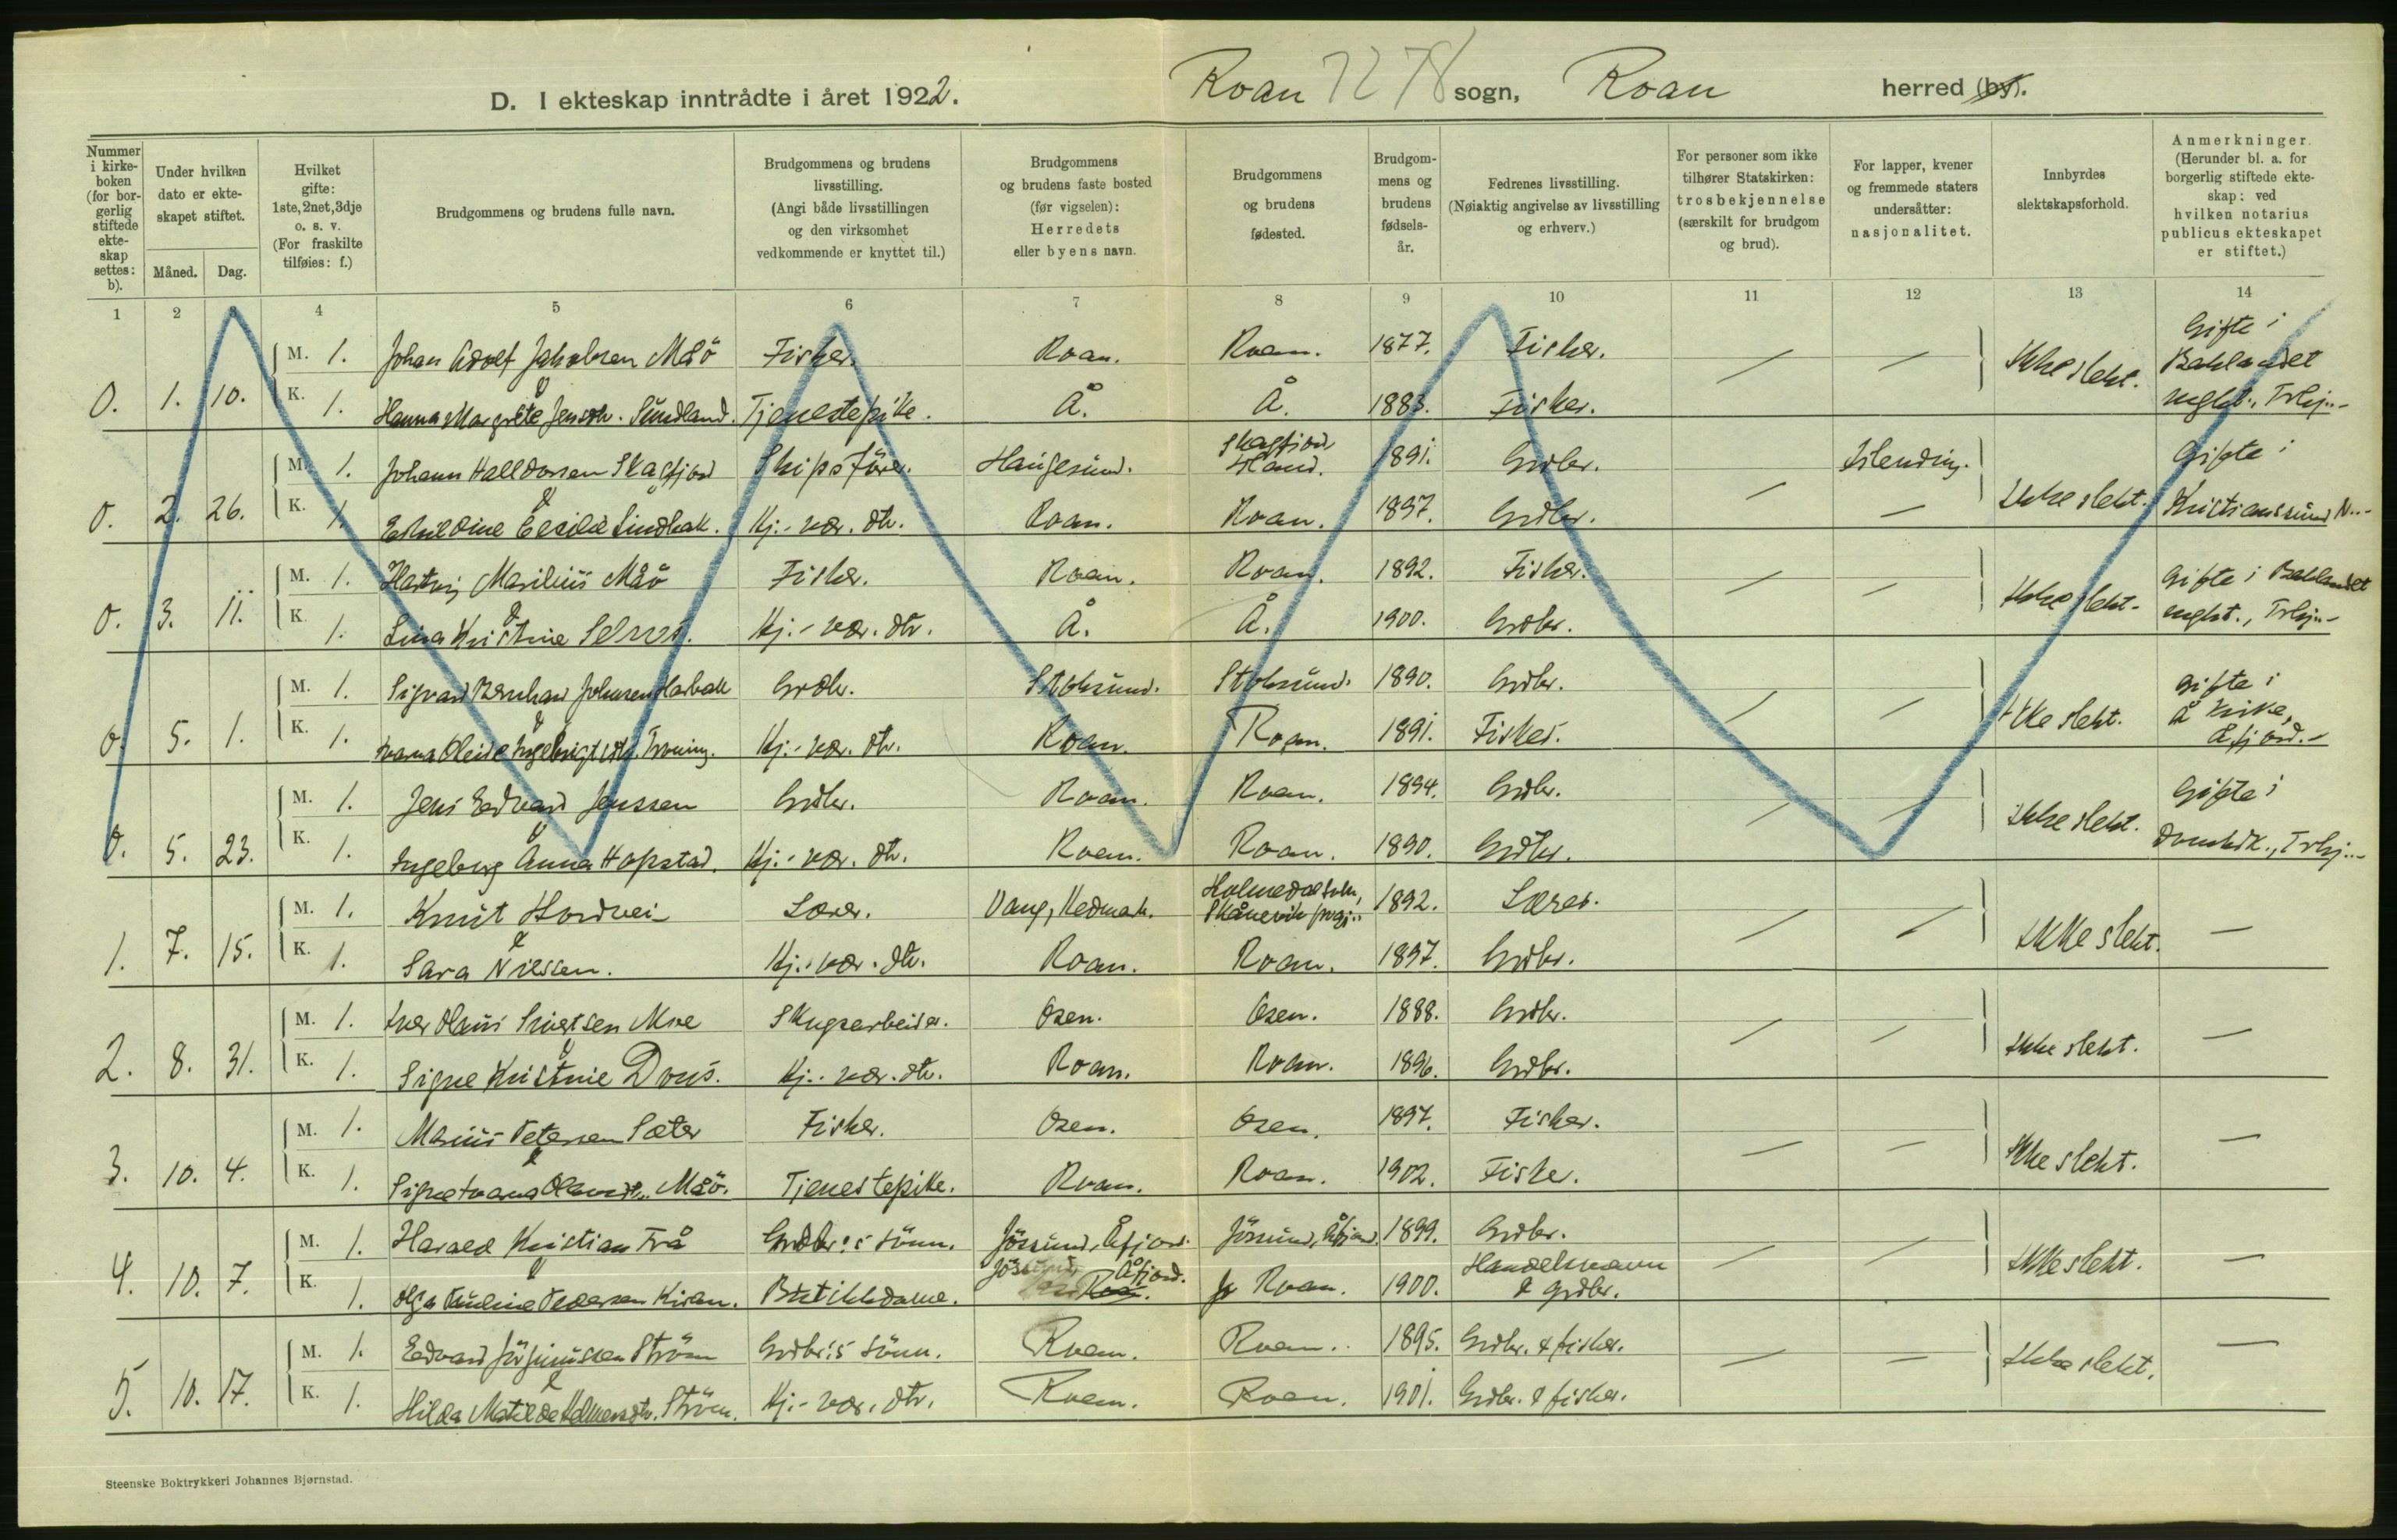 D. I ekteskap inntrådte i året 1922. Roan 7278 sogn, Roan herred (by).
Nummer i kirkeboken (for borgerlig stiftede ekteskap settes: b).
Under hvilken dato er ekteskapet stiftet.
Måned. Dag.
Hvilket gifte: 1ste, 2net, 3dje o. s. v. (For fraskilte tilføies: f.)
Brudgommens og brudens fulle navn.
Brudgommens og brudens livsstilling. (Angi både livsstillingen og den virksomhet vedkommende er knyttet til.)
Brudgommens og brudens faste bosted (før vigselen): Herredets eller byens navn.
Brudgommens og brudens fødested.
Brudgommens og brudens fødselsår.
Fedrenes livsstilling. (Nøiaktig angivelse av livsstilling og erhverv.)
For personer som ikke tilhører Statskirken: trosbekjennelse (særskilt for brudgom og brud).
For lapper, kvener og fremmede staters undersåtter: nasjonalitet.
Innbyrdes slektskapsforhold.
Anmerkninger. (Herunder bl. a. for borgerlig stiftede ekteskap: ved hvilken notarius publicus ekteskapet er stiftet.)
1 2 3 4 5 6 7 8 9 10 11 12 13 14
M. 1. Johan Adolf Jakobsen Måö Fisker. Roan. Roan. 1877. Fisker. — — Ikke slekt. Gifte i Baklandet
0. 1. 10. K. 1. & Hanna Margrete Jensdtr. Sundland. Tjenestepike. Å. Å. 1883. Fisker. mght., Trhj.-
M. 1. Johann Halldorsen Skagfjord Skipsförer. Haugesund. Skagfjord, Island. 1891. Grdbr. — Islending. Ikke slekt. Gifte i
0. 2. 26. K. 1. & Cecilie Lindbak. Hj.- vær. dtr. Roan. Roan. 1897. Grdbr. — Kristianssund N.-
M. 1. Hartvig Marilius Måö Fisker. Roan. Roan. 1892. Fisker. — — Ikke slekt. Gifte i Baklandet
0. 3. 11. K. 1. & Lina Kristine Selnes. Hj.- vær. dtr. Å. Å. 1900. Grdbr. mght., Trhj.-
M. 1. Sigvard Bernhard Johnsen Harbak Grdbr. Stoksund. Stoksund. 1890. Grdbr. — — Ikke slekt. Gifte i
0. 5. 1. K. 1. & Hj.- vær. dtr. Roan. Roan. 1891. Fisker. Å kirke, Åfjord.-
M. 1. Jens Edvard Jenssen Grdbr. Roan. Roan. 1894. Grdbr. — — Ikke slekt. Gifte i
0. 5. 23. K. 1. & Ingeborg Anna Hopstad. Hj.- vær. dtr. Roan. Roan. 1890. Grdbr. Domkik., Trhj.-
M. 1. Knut Hordvei Lærer. Vang, Hedmark. Holmedal sokn, Skånevik prgj. 1892. Lærer. — — Ikke slekt. —
1. 7. 15. K. 1. & Sara Nilssen. Hj.- vær. dtr. Roan. Roan. 1897. Grdbr.
M. 1. Iver Olaus Sivertsen Moe Skogsarbeider. Osen. Osen. 1888. Grdbr. — — Ikke slekt. —
2. 8. 31. K. 1. & Signe Kristine Dous. Hj.- vær. dtr. Roan. Roan. 1896. Grdbr.
M. 1. Marius Petersen Sæter Fisker. Osen. Osen. 1897. Fisker. — — Ikke slekt. —
3. 10. 4. K. 1. & Måö. Tjenestepike. Roan. Roan. 1902. Fisker.
M. 1. Harald Kristian Trå Grdbr:s sönn. Jössund, Åfjord. Jössund, Åfjord. 1899. Grdbr. — — Ikke slekt. —
4. 10. 7. K. 1. & Olga Pauline Pedersen Kiran. Butikkdame. Jössund, Åfjord. Roan. Roan. 1900. Handelsmann & grdbr.
M. 1. Edvard Jörginussen Ström Grdbr:s sönn. Roan. Roan. 1895. Grdbr. & fisker. — — Ikke slekt. —
5. 10. 17. K. 1. & Hilda Matilde Ström. Hj.- vær. dtr. Roan. Roan. 1901. Grdbr. & fisker.
Steenske Boktrykkeri Johannes Bjørnstad.